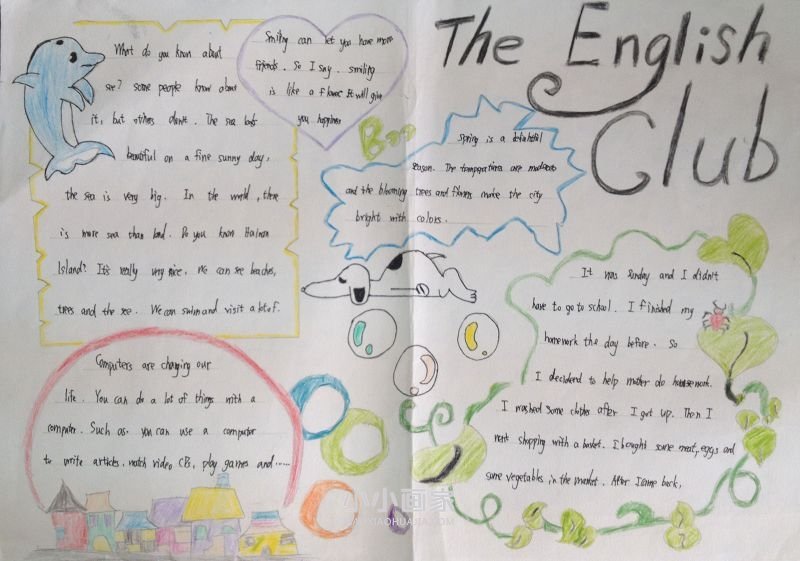 The English
Club
What do you know about
see? some people know about
it, but others don't. The sea looks
beautiful on a fine sunny day,
the sea is very big. In the world, there
is more sea than land. Do you know Hainan
Island? It's really very nice. We can see beaches,
trees and the see. We can swim and visit a lot of.
Smiling can let you have more
friends. So I say. smiling
is like a flower It will give
you happiness
Spring is a delightful
season. The temperatures are moderate
and the blooming trees and flowers make the city
bright with colors.
Computers are changing our
life. You can do a lot of things with a
computer. Such as. you can use a computer
to write articles. watch video CDs, play games and......
It was sunday and I didn't
have to go to school. I finished my
homework the day before. So
I decidend to help mother do housework.
I washed some clothes after I got up. Then I
went shopping with a basket. I bought some meat, eggs and
some vegetables in the market. After I came back,
小小画家